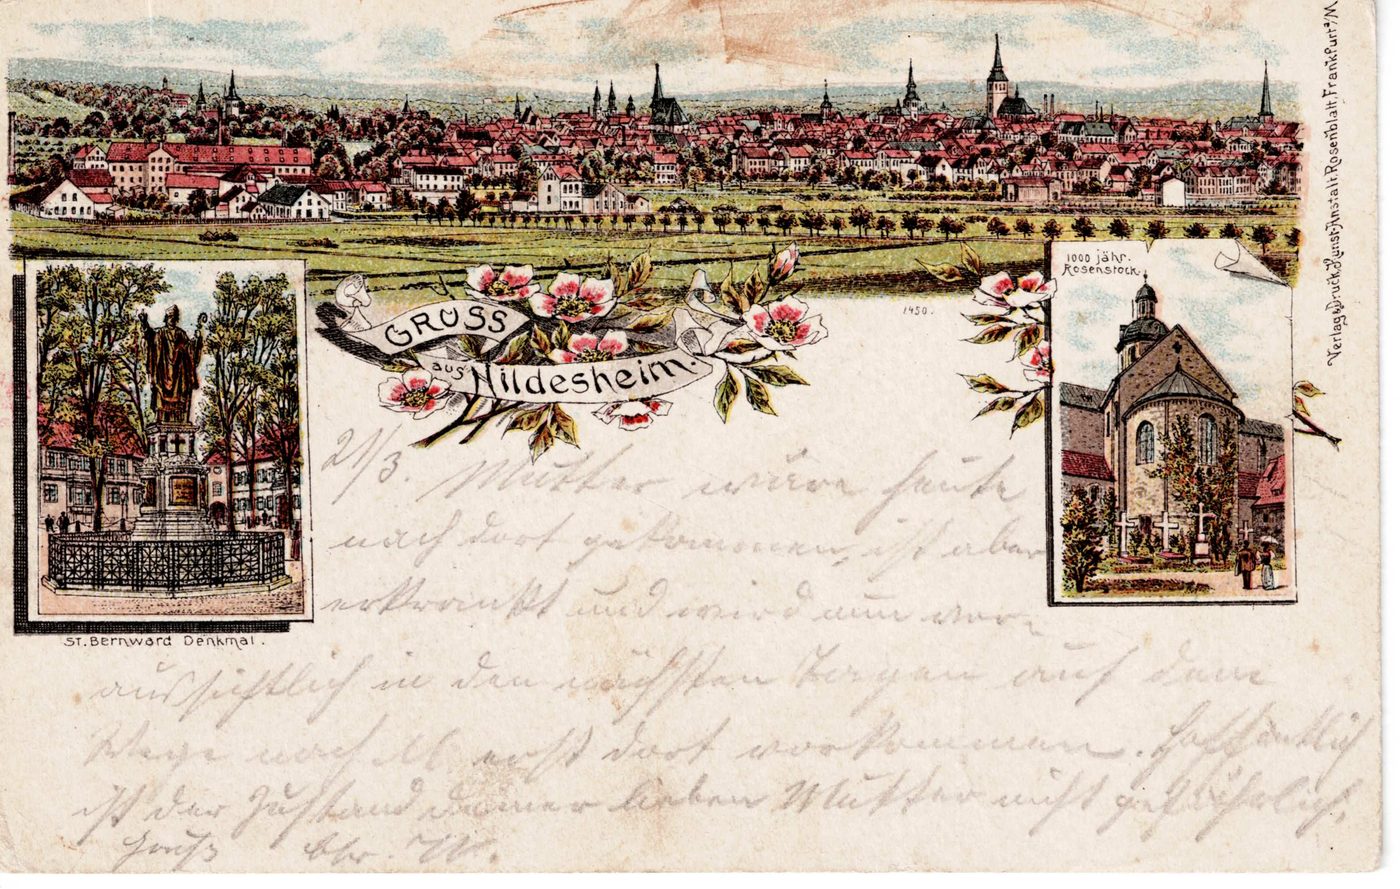 Verlag & Druck Kunst-Anstalt. Rosenblatt. Frankfurt a/M
1000 jähr.
Rosenstock.
GRUSS
aus Hildesheim.
1450.
St. Bernward Denkmal.
21/3. Mutter wäre heute
nach dort gekommen, ist aber
erkrankt und wird nun vor-
aussichtlich in den nächsten Tagen auf dem
Wege nach erst dort vorkommen. Hoffentlich
ist der Zustand deiner lieben Mutter nicht gefährlich.
Gruß W.